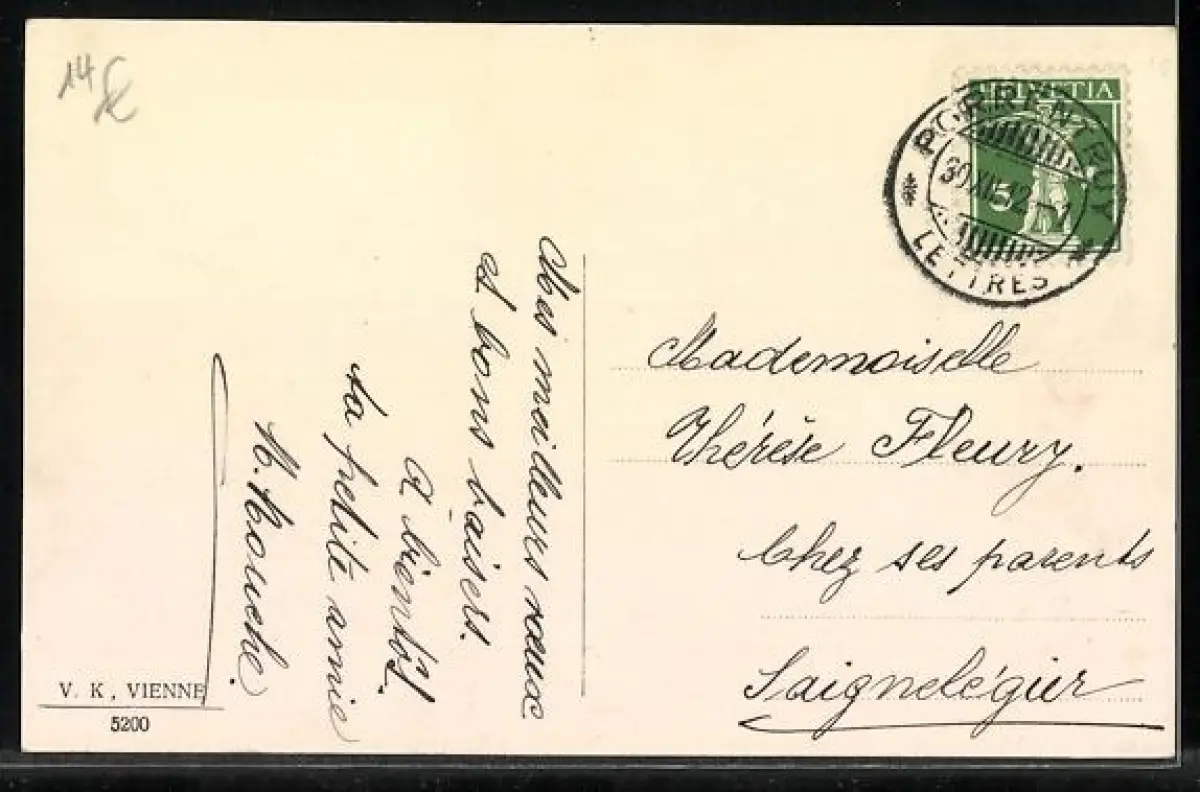 14€
HELVETIA
5
PORRENTRUY
30 XII 12 - 1
LETTRES
Mes meilleurs voeux
et bons baisers.
A bientôt.
ta petite amie
M. Mouche.
Mademoiselle
Thérèse Fleury.
Chez ses parents
Saignelégier
V. K, VIENNE
5200